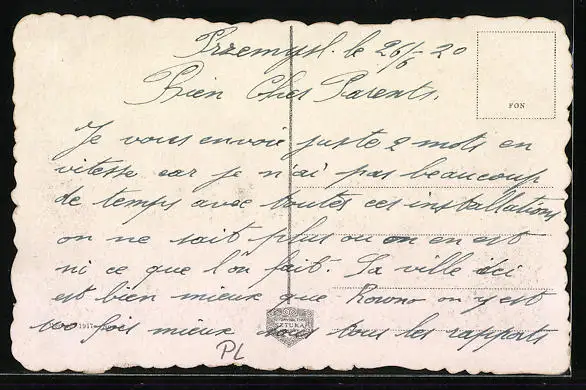 Przemysl. le 26/6 20
Bien Chers Parents.
FON
Je vous envoie juste 2 mots en
vitesse car je n'ai pas beaucoup
de temps avec toutes ces installations
on ne sait plus ou on en est
ni ce que l'on fait. La ville ici
est bien mieux que Rowno on y est
100 fois mieux sous tous les rapports
1917
SZTUKA
PL